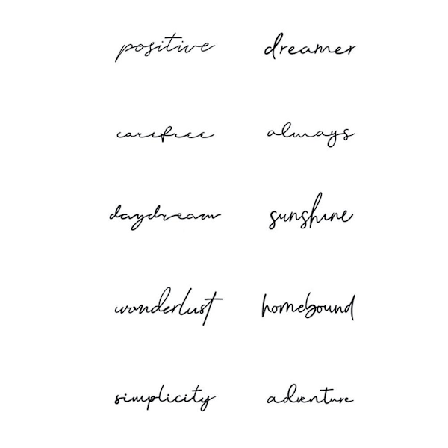 positive dreamer
carefree always
daydream sunshine
wonderlust homebound
simplicity adventure